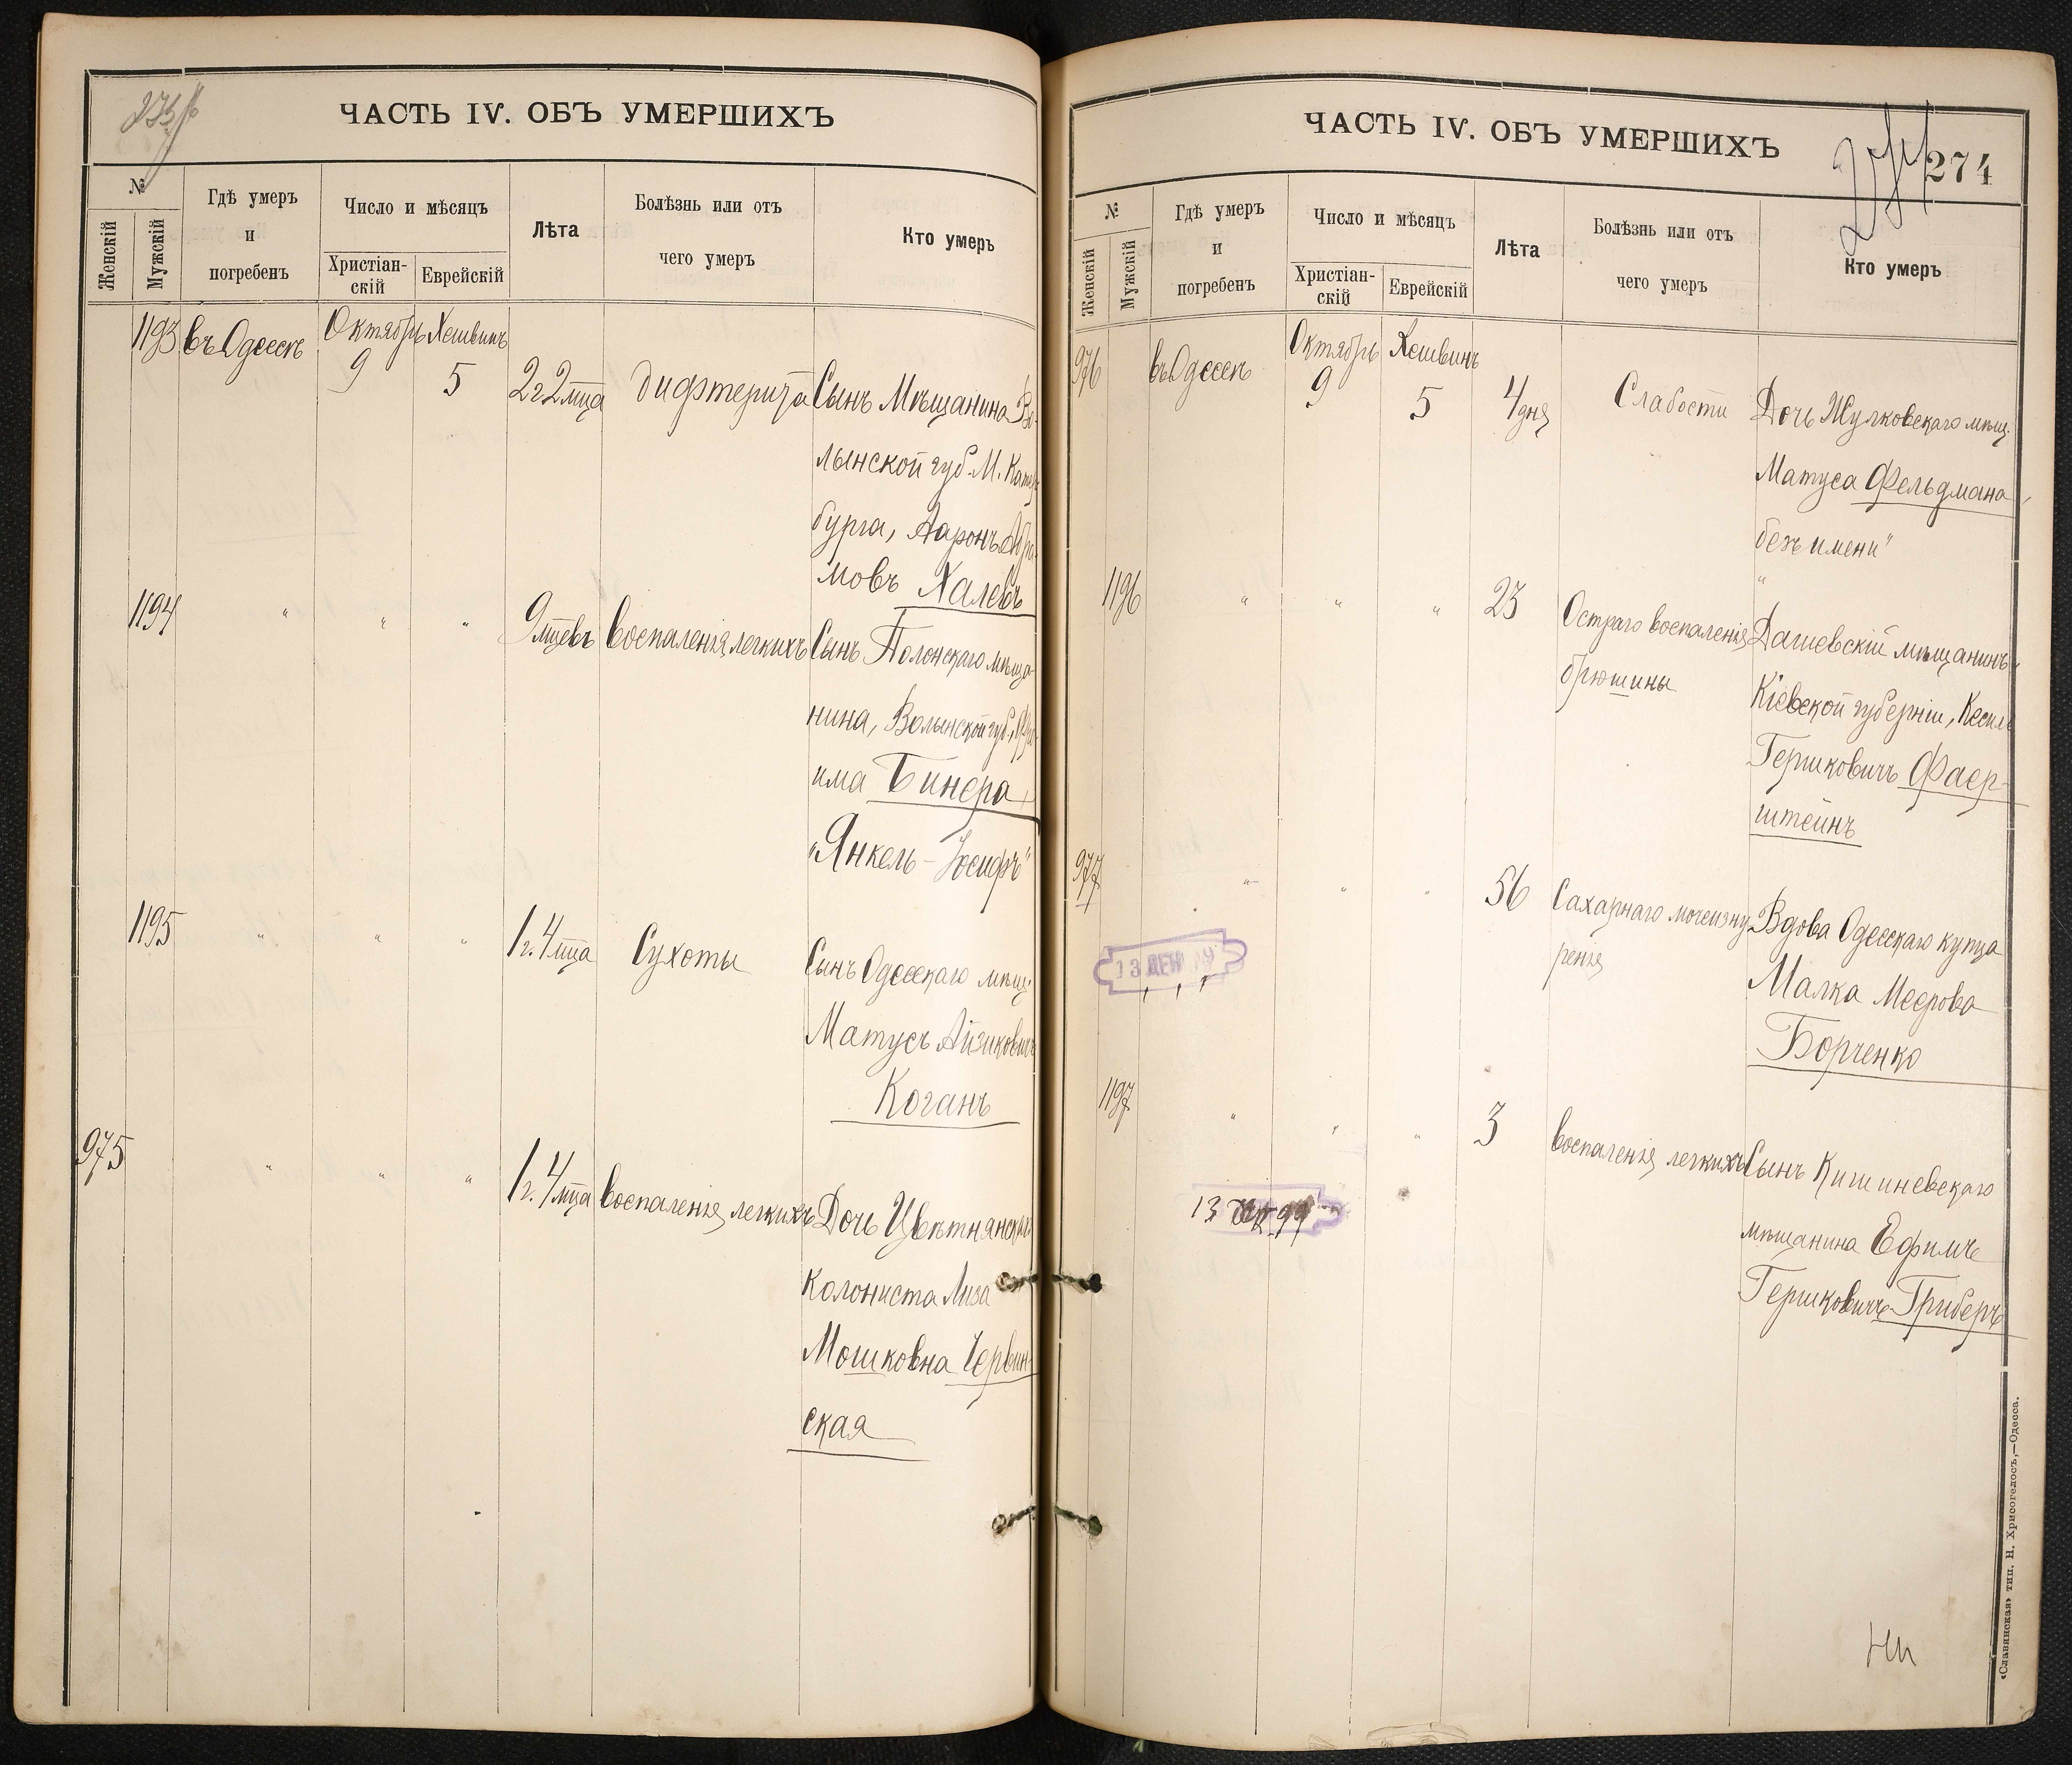 ЧАСТЬ IV. ОБЪ УМЕРШИХЪ
№
Женскій
Мужскій
Гдѣ умеръ
и
погребенъ
Число и мѣсяцъ
Христіан-
скій
Еврейскій
Лѣта
Болѣзнь или отъ
чего умеръ
Кто умеръ
1193 въ Одессѣ Октябрь Хешвинъ
9 5 2 г 2 мца дифтерита Сынъ Мѣщанина Во-
лынской губ. М. Катер
бурга, Ааронъ Абра-
мовъ Халевъ
1194 " " " 9 мцевъ воспаленія легкихъ Сынъ Полонскаго мѣща-
нина, Волынской губ.,
има Бинера,
"Янкель-Іосифъ"
1195 " " " 1 г. 4 мца Сухоты Сынъ Одесскаго мѣщ.
Матусъ Айзиковичъ
Коганъ
975 " " " 1 г. 4 мца воспаленія легкихъ Дочь Цвѣтнянскаго
колониста Лиза
Мошковна Червин-
ская
ЧАСТЬ IV. ОБЪ УМЕРШИХЪ
274
274
№
Женскій
Мужскій
Гдѣ умеръ
и
погребенъ
Число и мѣсяцъ
Христіан-
скій
Еврейскій
Лѣта
Болѣзнь или отъ
чего умеръ
Кто умеръ
976 въ Одессѣ Октябрь Хешвинъ
9 5 4 дня Слабости Дочь Жулковскаго мѣщ.
Матуса Фельдмана,
"безъ имени"
1196 " " " 23 Остраго воспаленія Дашевскій мѣщанинъ
брюшины Кіевской губерніи,
Гершковичъ Фаер-
штейнъ
977 " " " 56 Сахарнаго мочеизну Вдова Одесскаго купца
ренія Малка Меерова
Борченко
13 ДЕК 99
1197 " " " 3 воспаленія легкихъ Сынъ Кишиневскаго
мѣщанина Ефимъ
Гершковичъ Гриберъ
13 99
«Славянская» тип. Н. Хрисогелосъ,—Одесса.